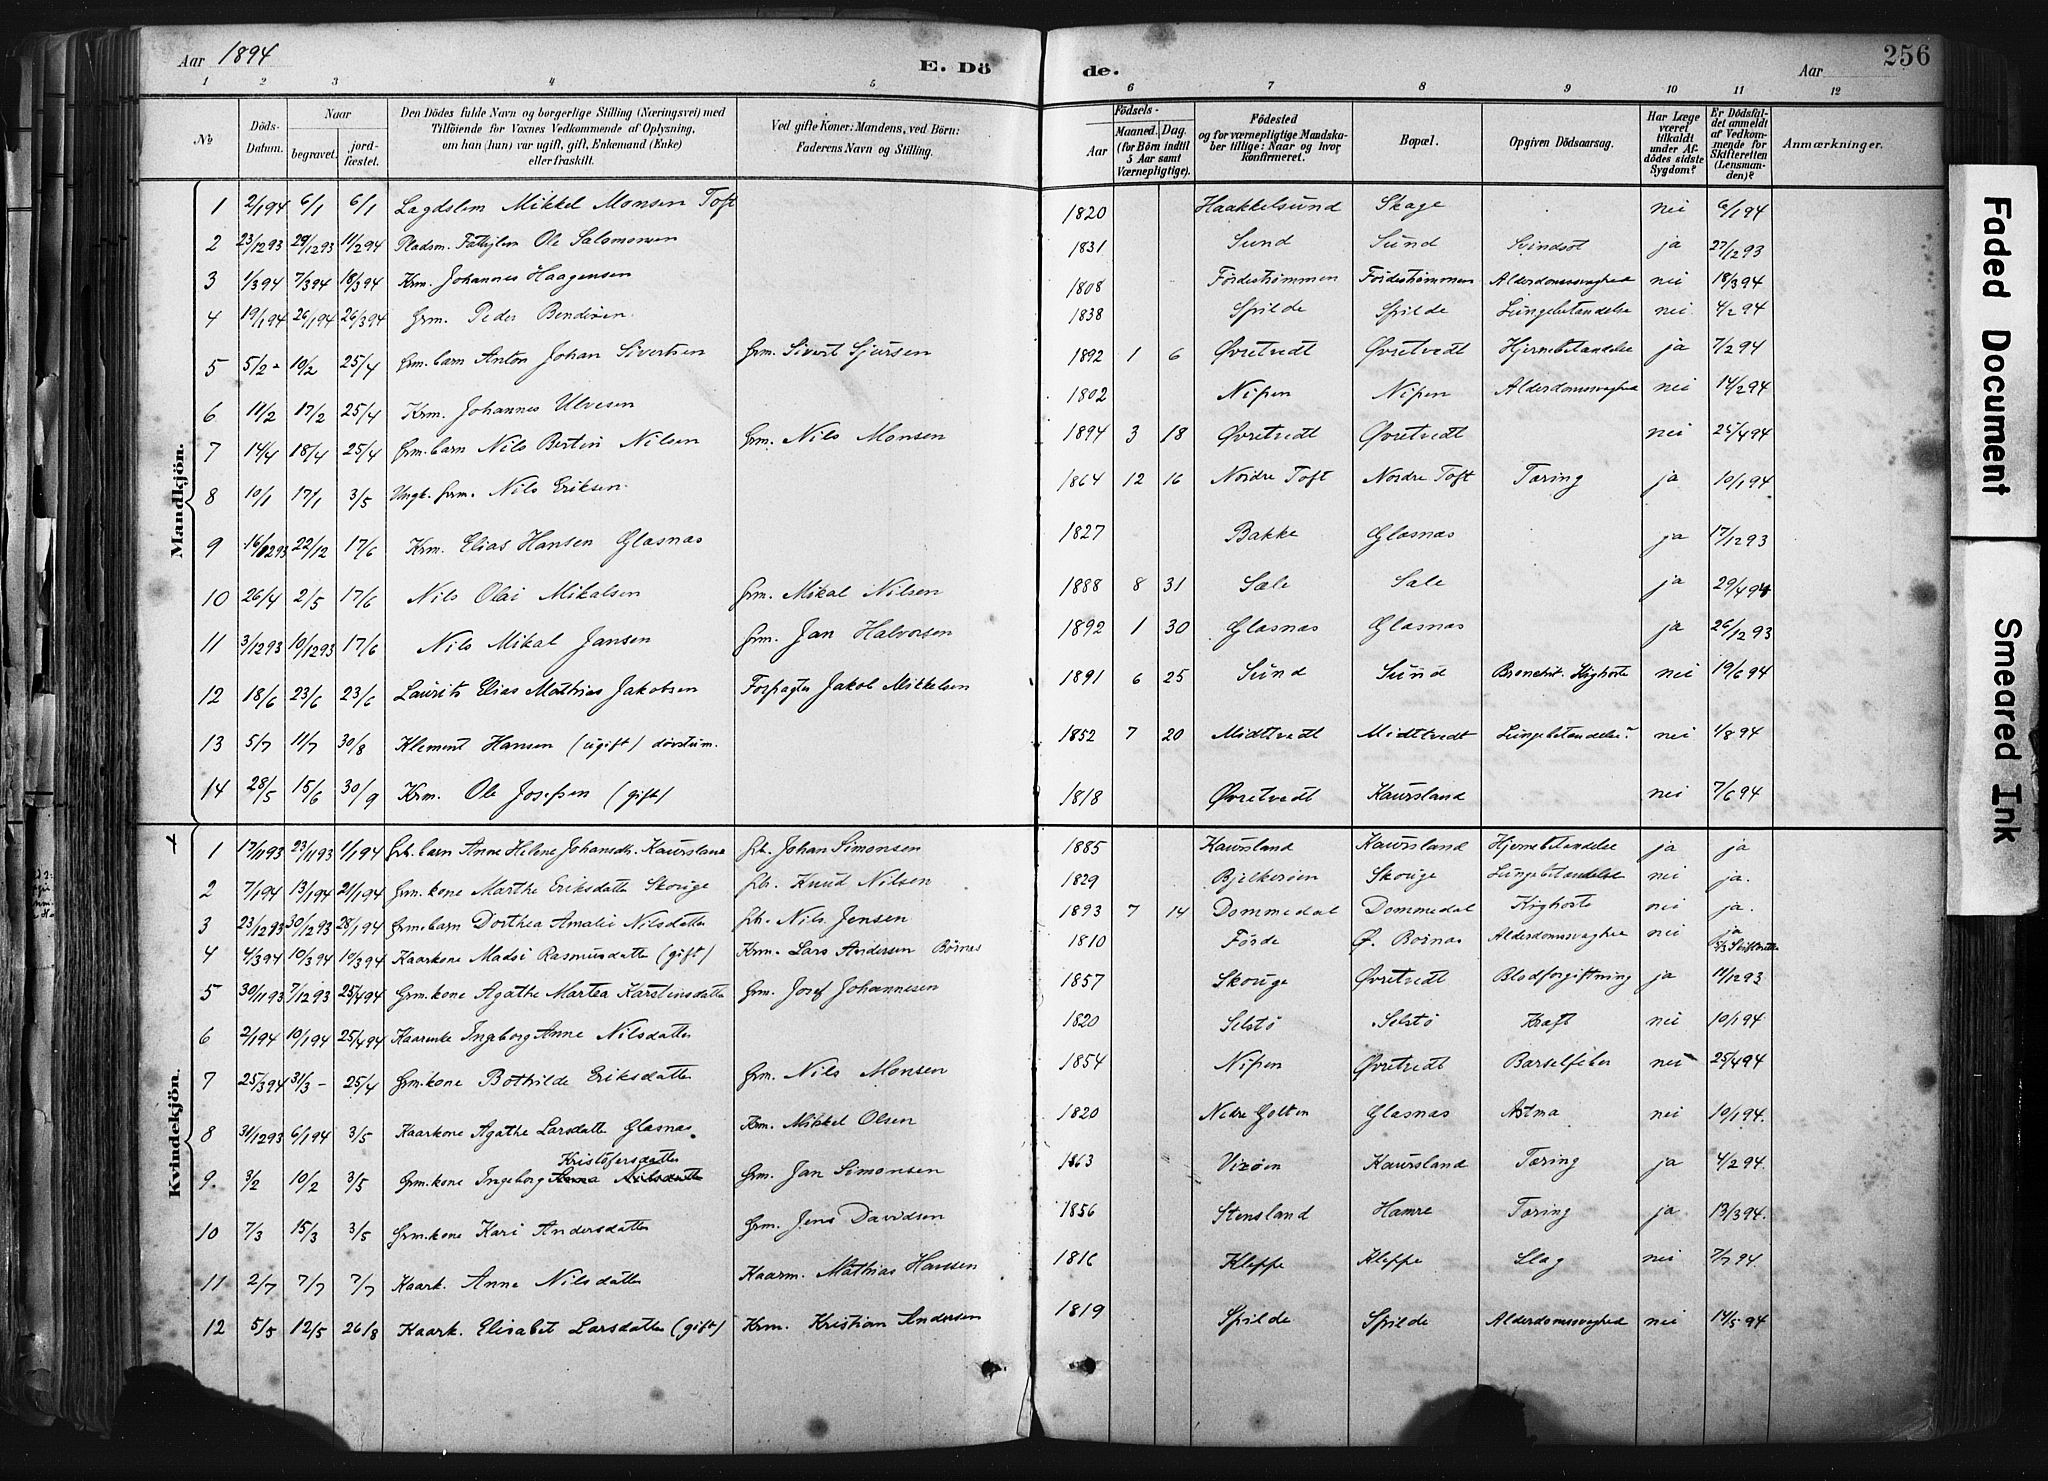 Aar 1894 E. Döde. Aar 256
1 2 3 4 5 6 7 8 9 10 11 12
№ Döds-Datum. Naar begravet. jord-fæstet. Den Dödes fulde Navn og borgerlige Stilling (Næringsvei) med Tilföiende for Voxnes Vedkommende af Oplysning, om han (hun) var ugift, gift, Enkemand (Enke) eller fraskilt. Ved gifte Koner: Mandens, ved Börn: Faderens Navn og Stilling. Födsels- Aar Maaned. Dag. (for Börn indtil 5 Aar samt Værnepligtige). Födested og for værnepligtige Mandskaber tillige: Naar og hvor konfirmeret. Bopæl. Opgiven Dödsaarsag. Har Læge været tilkaldt under Afdödes sidste Sygdom? Er Dödsfaldet anmeldt af Vedkommende for Skifteretten (Lensmanden)? Anmærkninger.
Mandkjön.
1 2/1 94 6/1 6/1 Lagdslem Mikkel Monsen Toft 1820 Haakkelsund Skage nei 6/1 94
2 23/12 93 29/12 93 11/2 94 Pladsm. Fattiglem Ole Salomonsen 1831 Sund Sund Svindsot ja 27/12 93
3 1/3 94 7/3 94 18/3 94 Krm. Johannes Haagensen 1808 Fördeströmmen Fördeströmmen Alderdomssvaghed nei 18/3 94
4 19/1 94 26/1 94 26/3 94 Grm. Peder Bendixen 1838 Spilde Spilde Lungebetændelse nei 4/2 94
5 5/2 - 10/2 25/4 Grm. barn Anton Johan Sivertsen Grm. Sivert Sjursen 1892 1 6 Øvretvedt Øvretvedt Hjernebetændelse ja 7/2 94
6 11/2 17/2 25/4 Krm. Johannes Ulvesen 1802 Nipen Nipen Alderdomssvaghed nei 14/2 94
7 14/4 18/4 25/4 Grm. barn Nils Bertin Nilsen Grm. Nils Monsen 1894 3 18 Øvretvedt Øvretvedt nei 25/4 94
8 10/1 17/1 3/5 Ungk. Grm. Nils Eriksen 1864 12 16 Nordre Toft Nordre Toft Tæring ja 10/1 94
9 16/12 93 22/12 17/6 Krm. Elias Hansen Glasnæs 1827 Bakke Glasnæs ja 17/12 93
10 26/4 2/5 17/6 Nils Olai Mikalsen Grm. Mikal Nilsen 1888 8 31 Sæle Sæle ja 29/4 94
11 3/12 93 10/12 93 17/6 Nils Mikal Jansen Grm. Jan Halvorsen 1892 1 30 Glasnæs Glasnæs ja 26/12 93
12 18/6 23/6 23/6 Laurits Elias Mathias Jakobsen Forpagter Jakob Mikkelsen 1891 6 25 Sund Sund Bronchit. Kighoste nei 19/6 94
13 5/7 11/7 30/8 Klement Hansen (ugift) døvstum. 1852 7 20 Midttvedt Midttvedt Lungebetændelse? nei 4/8 94
14 28/5 15/6 30/9 Krm. Ole Josefsen (gift) 1818 Øvretvedt Kaursland nei 7/6 94
Kvindekjön.
1 17/11 93 23/11 93 1/1 94 Grb. barn Anne Helene Johansdtr. Kaursland Grb. Johan Simonsen 1885 Kaursland Kaursland Hjernebetændelse ja ja
2 7/1 94 13/1 94 21/1 94 Grm. kone Marthe Eriksdatter Skouge Grb. Knud Nilsen 1829 Bjelkerøen Skouge Lungebetændelse nei ja.
3 23/12 93 30/12 93 28/1 94 Grm. barn Dorthea Amalie Nilsdatter Grb. Nils Jensen 1893 7 14 Dommedal Dommedal Kighoste nei ja.
4 4/3 94 10/3 94 10/3 94 Kaarkone Madsi Rasmusdatter (gift) Krm. Lars Andersen Börnæs 1810 Förde Ø. Bornæs Alderdomssvaghed nei ja
5 30/11 93 7/12 93 25/4 94 Grm. kone Agathe Martea Karstensdatter Grm. Josef Johannesen 1857 Skouge Øvretvedt Blodforgiftning ja 11/12 93
6 2/1 94 10/1 94 25/4 94 Kaarenke Ingeborg Anne Nilsdatter 1820 Selstö Selstö Kræft nei 10/1 94
7 25/3 94 31/3 - 25/4 Grm. kone Bothilde Eriksdatter Grm. Nils Monsen 1854 Nipen Øvretvedt Barselfeber nei 25/4 94
8 31/12 93 6/1 94 3/5 Kaarkone Agathe Larsdatter Glasnæs Krm. Mikkel Olsen 1820 Nedre Golten Glasnæs Astma nei 10/1 94
9 3/2 10/2 3/5 Grm. kone Ingeborg Kristofersdatter Grm. Jan Simonsen 1863 Vixøen Kaursland Tæring ja 4/2 94.
10 7/3 15/3 3/5 Grm. kone Kari Andersdatter Grm. Jens Davidsen 1856 Stensland Hamre Tæring ja 13/3 94.
11 2/7 7/7 7/7 Kaark. Anne Nilsdatter Kaarm. Mathias Hansen 1816 Kleppe Kleppe Slag nei 7/7 94
12 5/5 12/5 26/8 Kaark. Elisabet Larsdatter (gift) Krm. Kristian Andersen 1819 Spilde Spilde Alderdomssvaghed nei 14/5 94
Faded Document
Smeared Ink